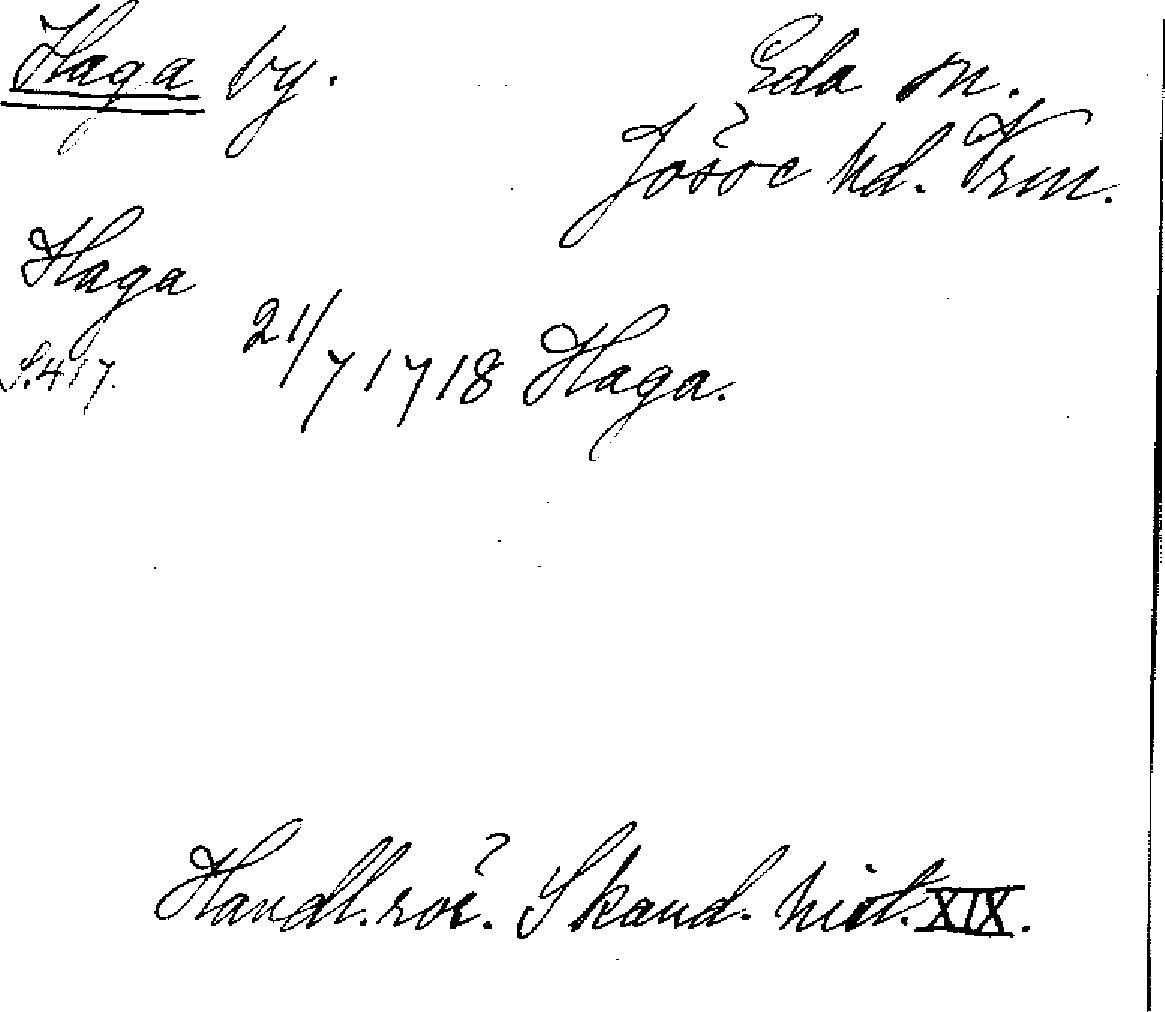 Haga by.
Eda sn.
Jösse hd. Vrm.
Haga
S. 417.
21/7 1718 Haga.
Handl. rör. Skand. hist. XIX.